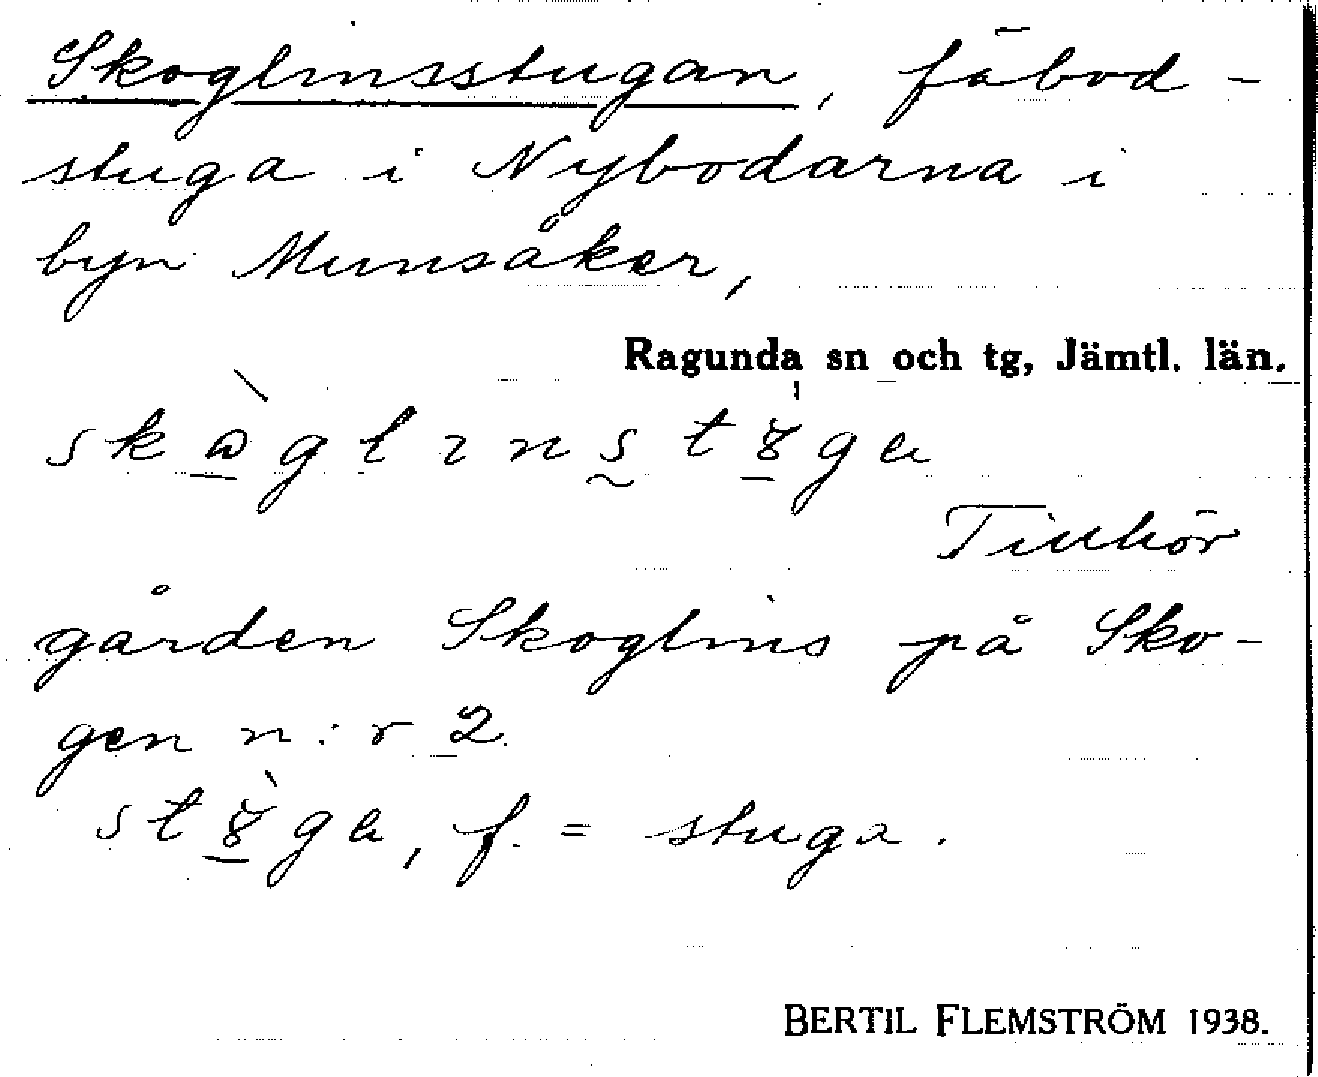 Skoglinsstugan, fäbod-
stuga i Nybodarna i
byn Munsåker,
Ragunda sn och tg, Jämtl. län.
Tillhör
gården Skoglins på Sko-
gen n:r 2.
f. = stuga.
BERTIL FLEMSTRÖM 1938.